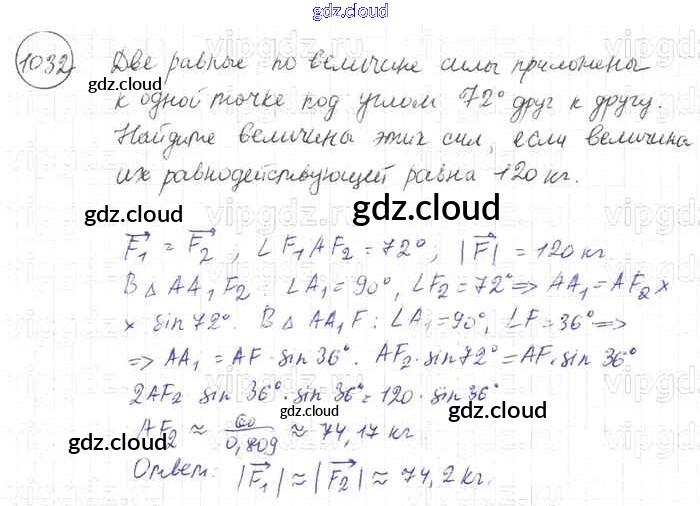 gdz.cloud
1032) Две равные по величине силы приложены
к одной точке под углом 72° друг к другу.
Найдите величины этих сил, если величина
их равнодействующей равна 120 кг.
gdz.cloud gdz.cloud gdz.cloud
F₁ = F₂ ; ∠F₁AF₂ = 72°; |F| = 120 кг.
В △ AA₁F₂ : ∠A₁ = 90°, ∠F₂ = 72° ⇒ AA₁ = AF₂ ×
× sin 72°. В △ AA₁F : ∠A₁ = 90°, ∠F = 36° ⇒
⇒ AA₁ = AF · sin 36°. AF₂ · sin 72° = AF · sin 36°
2AF₂ sin 36° · sin 36° = 120 · sin 36°
AF₂ ≈ 60/0,809 ≈ 74,17 кг
gdz.cloud gdz.cloud gdz.cloud
Ответ: |F₁| ≈ |F₂| ≈ 74,2 кг.